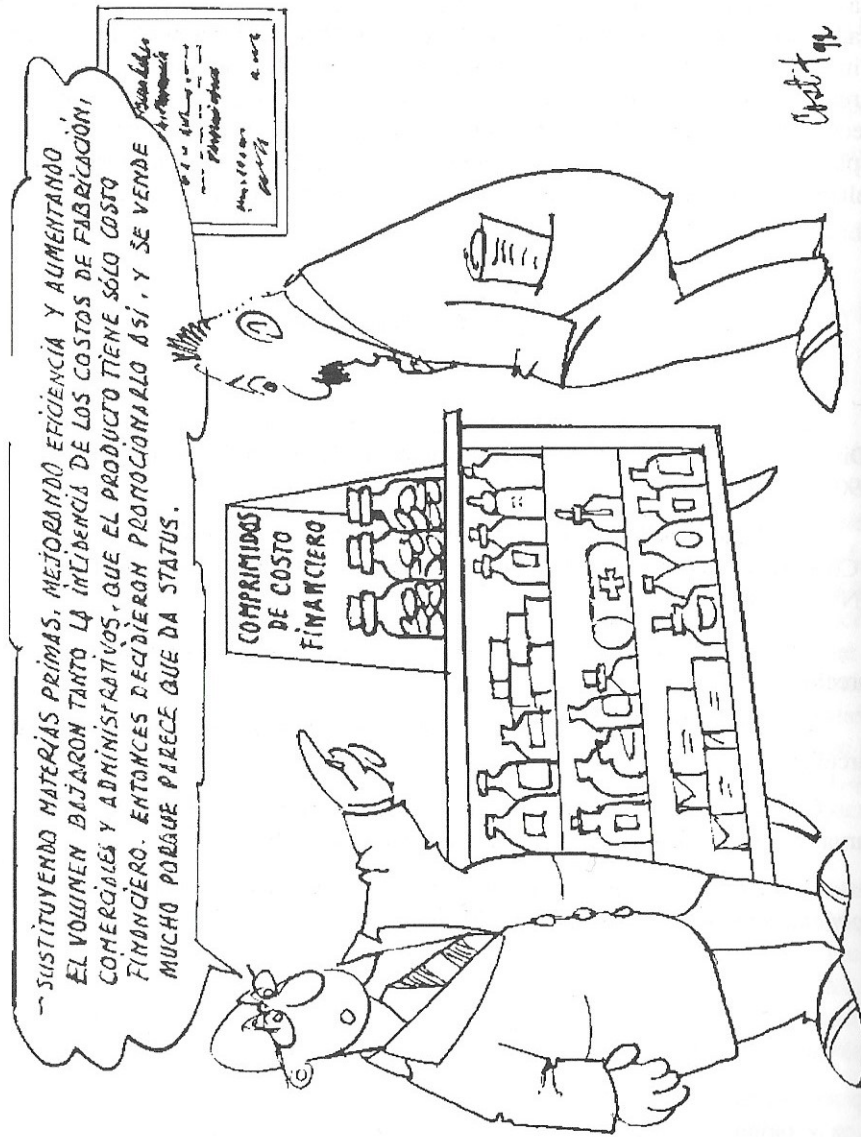 ~ SUSTITUYENDO MATERIAS PRIMAS, MEJORANDO EFICIENCIA Y AUMENTANDO
EL VOLUMEN BAJARON TANTO LA INCIDENCIA DE LOS COSTOS DE FABRICACIÓN,
COMERCIALES Y ADMINISTRATIVOS, QUE EL PRODUCTO TIENE SÓLO COSTO
FINANCIERO. ENTONCES DECIDIERON PROMOCIONARLO ASÍ, Y SE VENDE
MUCHO PORQUE PARECE QUE DA STATUS.
COMPRIMIDOS
DE COSTO
FINANCIERO